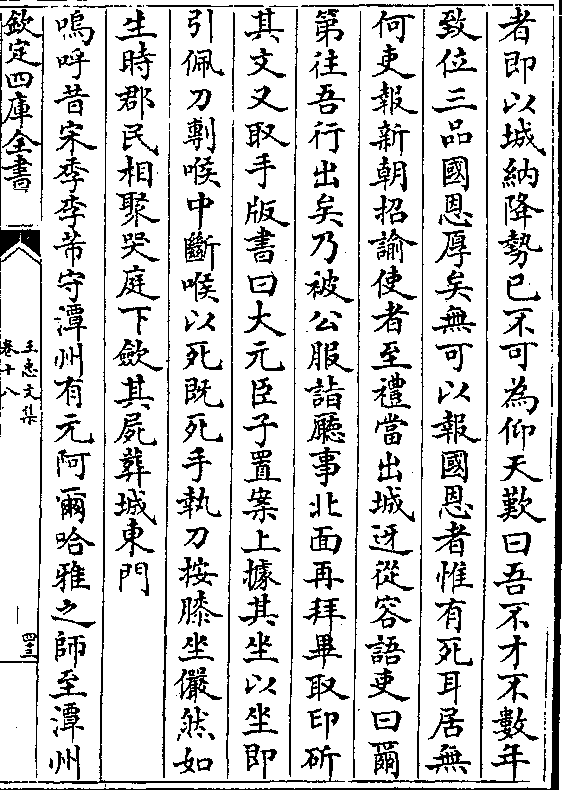 者即以城納降勢已不可為仰天歎曰吾不才不數年
致位三品國恩厚矣無可以報國恩者惟有死耳居無
何吏報新朝招諭使者至禮當出城迓從容語吏曰爾
第往吾行出矣乃被公服詣廳事北面再拜畢取印斫
其文又取手版書曰大元臣子置案上據其坐以坐即
引佩刀剚喉中斷喉以死既死手執刀按膝坐儼然如
生時郡民相聚哭庭下歛其屍葬城東門
嗚呼昔宋季李芾守潭州有元阿爾哈雅之師至潭州
欽定四庫全書
王忠文集
卷十八
四三